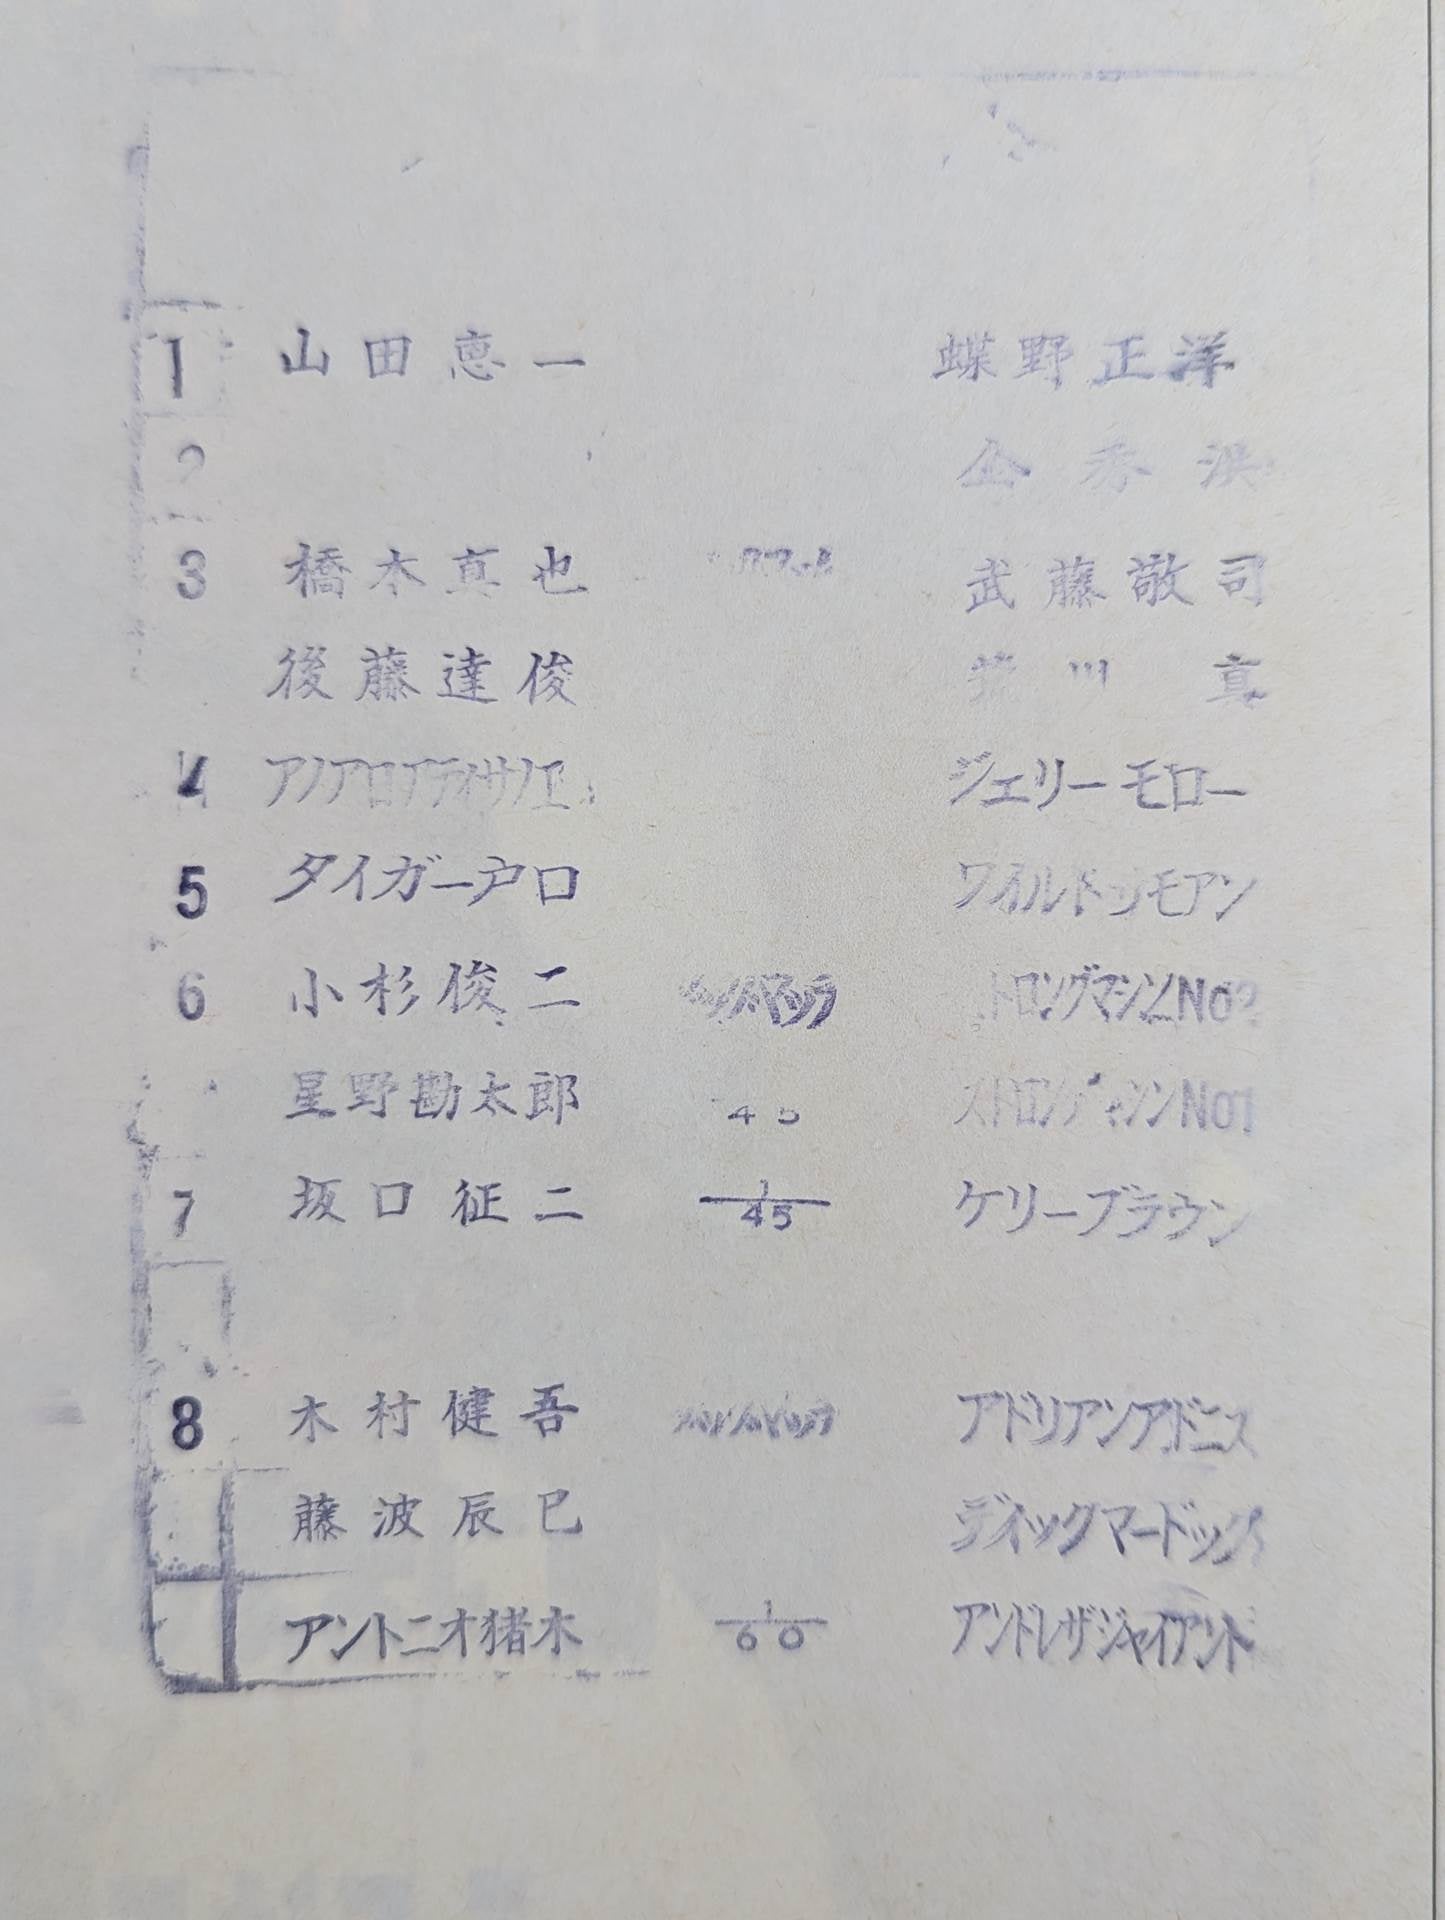 1 山田恵一 蝶野正洋
2 金秀洪
3 橋本真也 タッグマッチ 武藤敬司
後藤達俊 荒川真
4 ジェリーモロー
5 タイガー戸口 ワイルドサモアン
6 小杉俊二 ストロングマシンNo2
星野勘太郎 45 ストロングマシンNo1
7 坂口征二 1/45 ケリーブラウン
8 木村健吾 アドリアンアドニス
藤波辰巳 ディックマードック
アントニオ猪木 1/60 アンドレザジャイアント